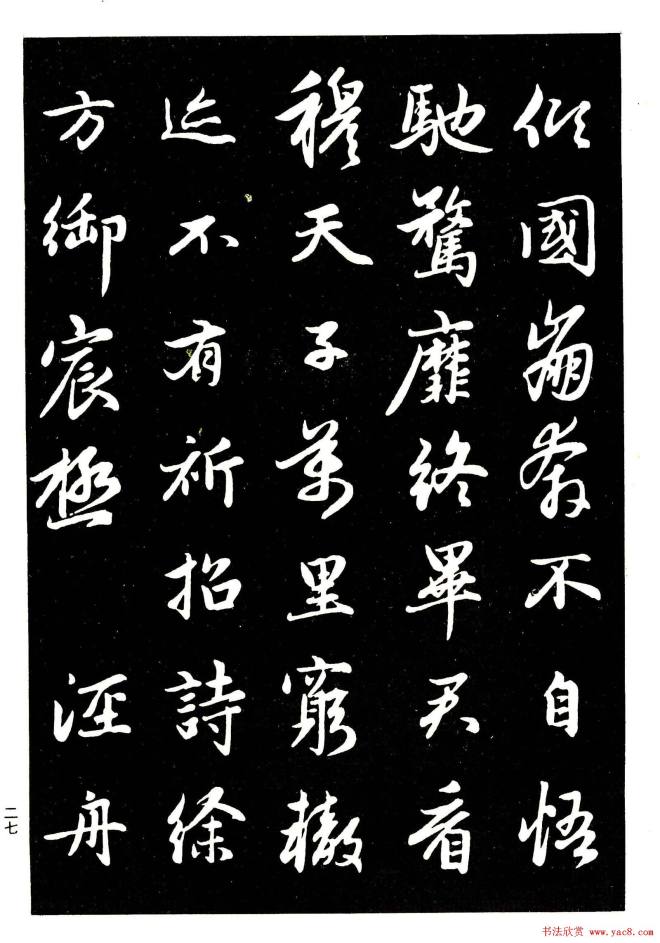 傾國崩奔不自悟
馳騖靡終畢君看
穆天子萬里窮轍
迹不有祈招詩徐
方御宸極 涇舟
二七
书法欣赏 www.yac8.com